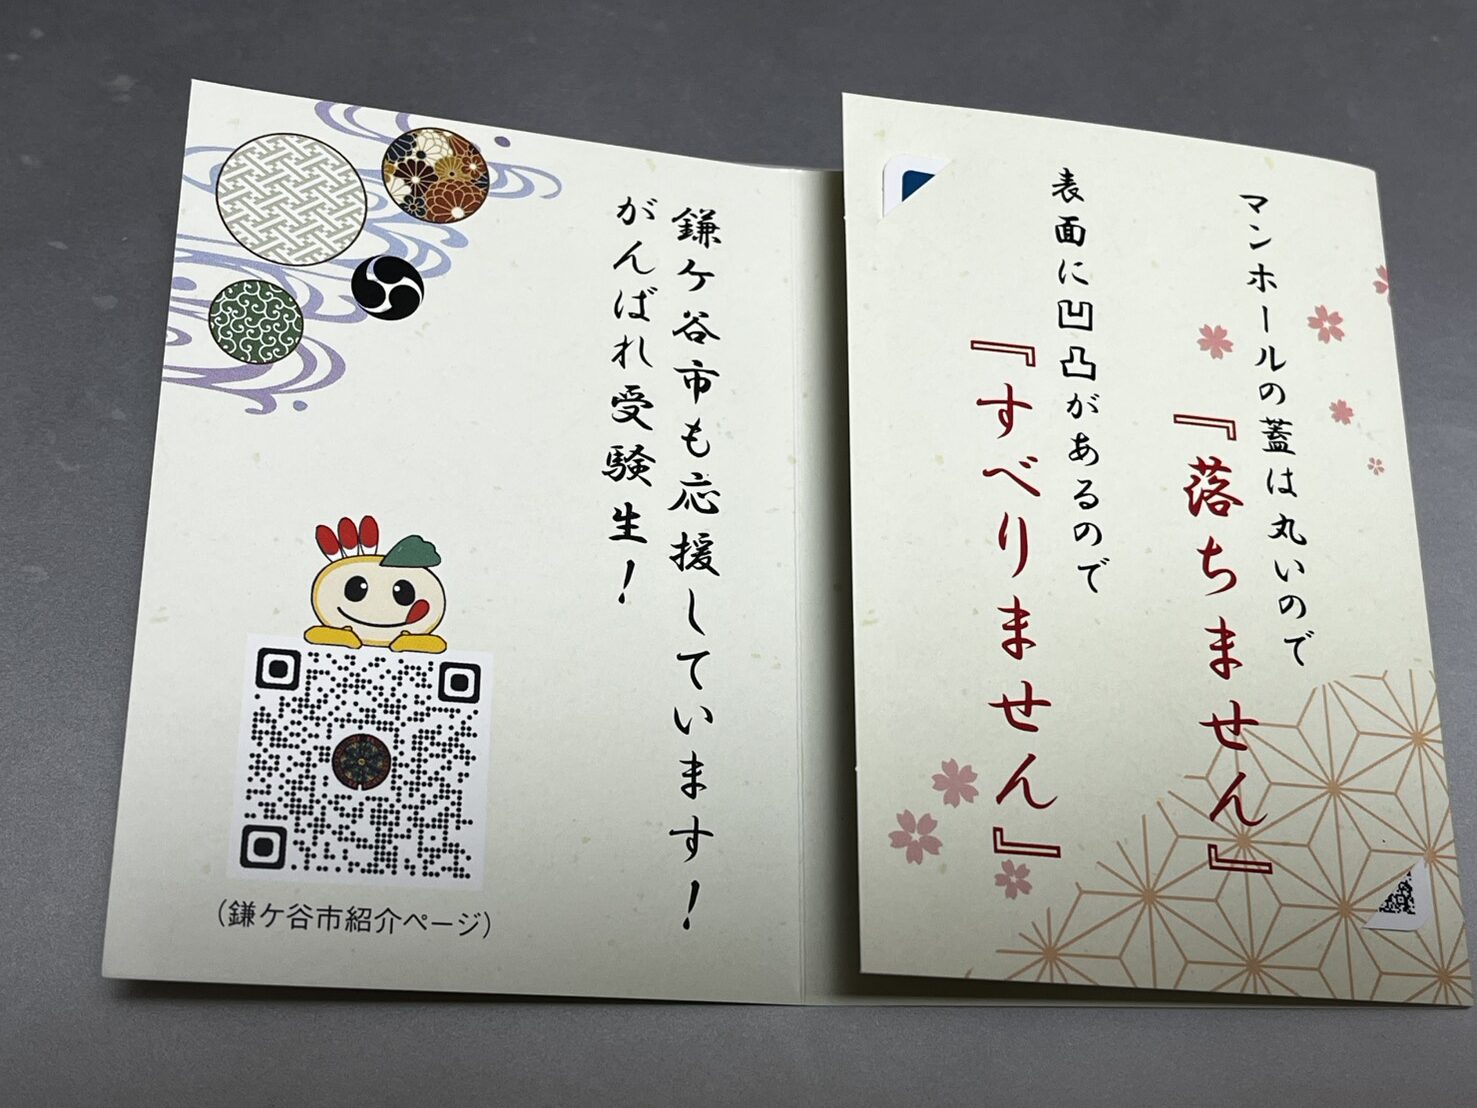 マンホールの蓋は丸いので
『落ちません』
表面に凹凸があるので
『すべりません』
鎌ケ谷市も応援しています！
がんばれ受験生！
(鎌ケ谷市紹介ページ)